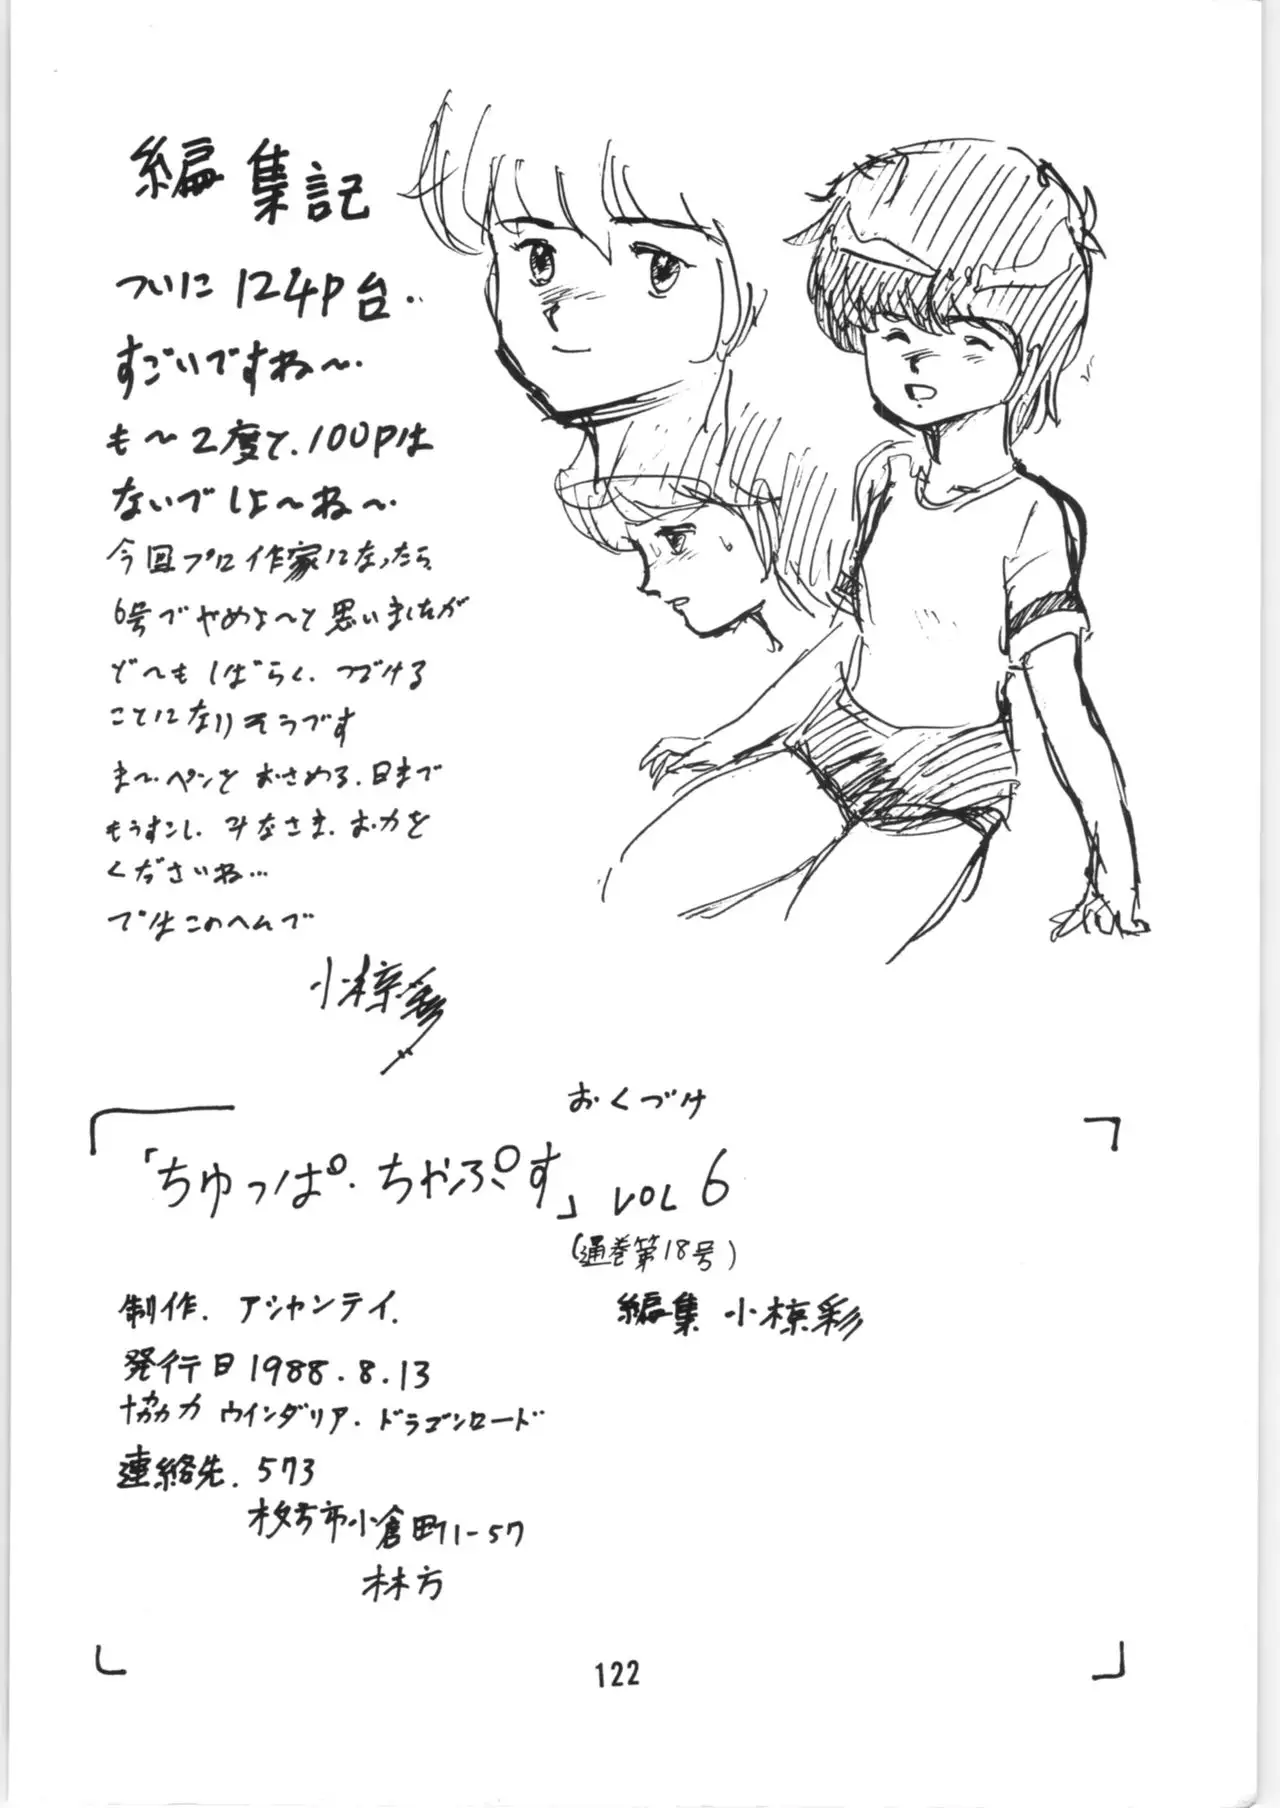 編集記
ついに124P台..
すごいですね〜.
も〜2度と.100Pは
ないでしょ〜ね〜.
今回プロ作家になったら
6号でやめよ〜と思いましたが
ど〜もしばらく.つづける
ことになりそうです
ま〜.ペンをおさめる.日まで
もうすこし.みなさま.お力を
くださいね...
ではこのへんで
小椋彩
おくづけ
「ちゅっぱ.ちゃぷす」VOL 6
(通巻第18号)
制作.アシャンティ.
編集 小椋彩
発行日1988.8.13
協力 ウインダリア.ドラゴンロード
連絡先.573
枚方市小倉町11-57
林方
122